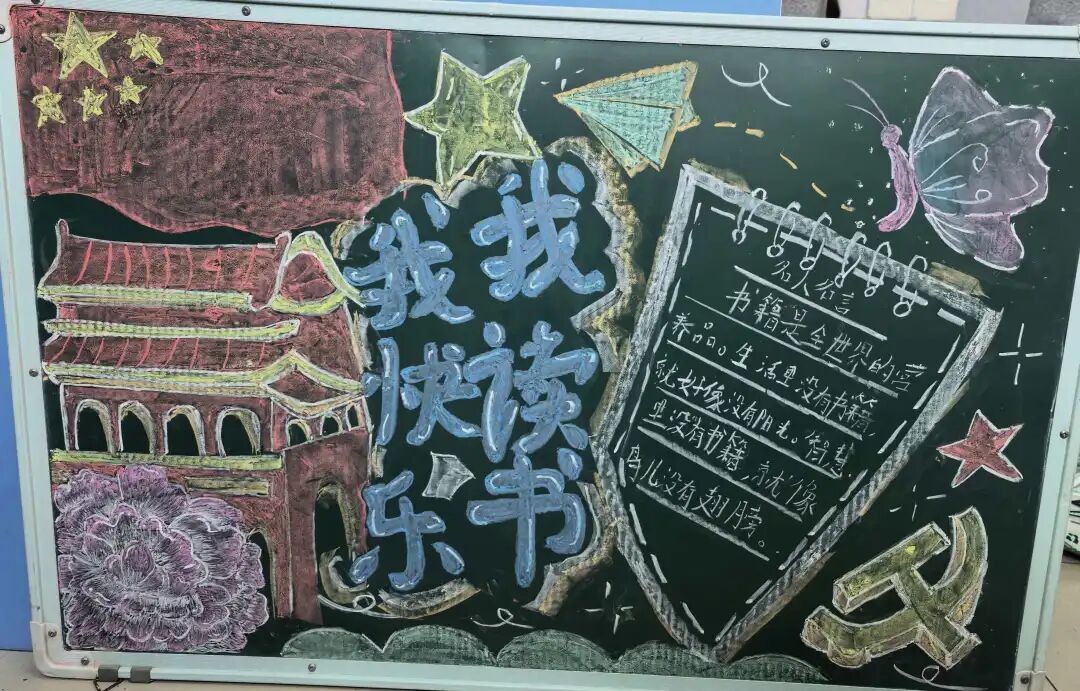 我读书
我快乐
名人名言
书籍是全世界的营
养品。生活里没有书籍,
就好像没有阳光。智慧
里没有书籍,就像
鸟儿没有翅膀。